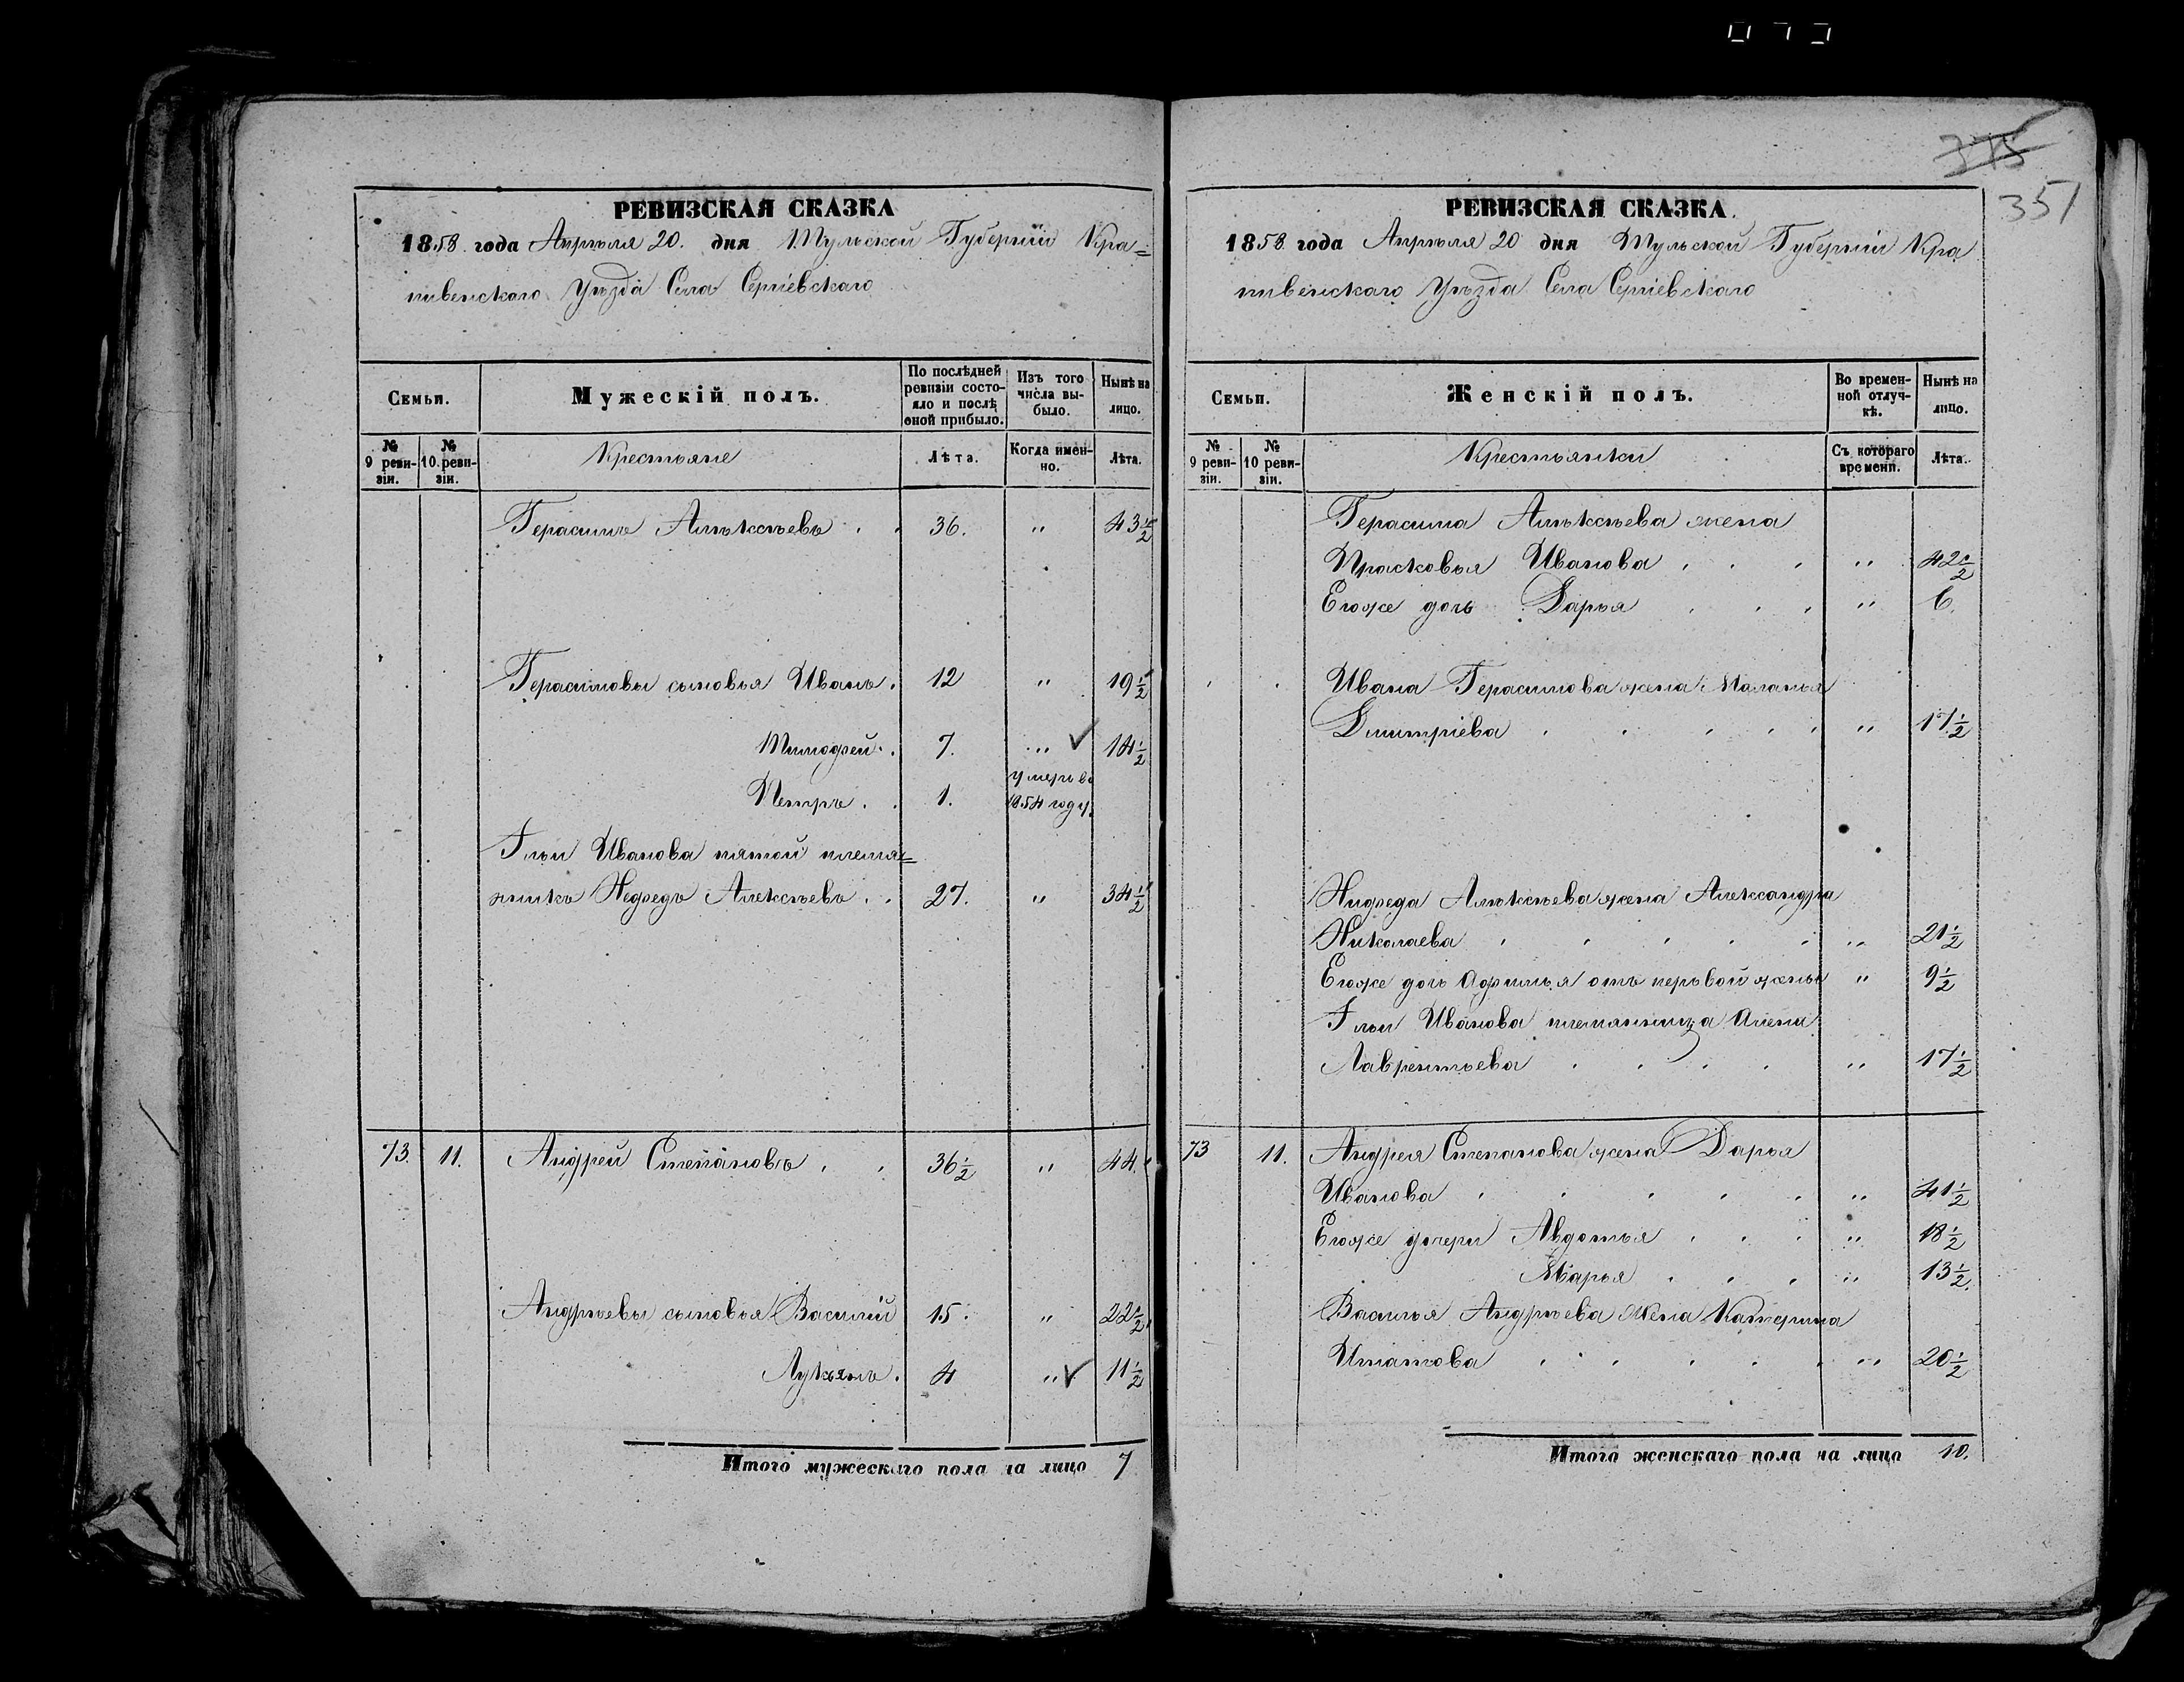 375
351
РЕВИЗСКАЯ СКАЗКА
1858 года Апрѣля 20. дня Тульской Губерніи Кра=
пивенскаго Уѣзда Села Сергіевскаго
Семьи.
Мужескій полъ.
По послѣдней ревизіи состояло и послѣ оной прибыло.
Изъ того числа выбыло.
Нынѣ на лицо.
№ 9 ревизіи.
№ 10. ревизіи.
Крестьяне
Лѣта.
Когда именно.
Лѣта.
Герасимъ Алѣксѣевъ . . 36. " 43 1/2
Герасимовы сыновья Иванъ . 12 " 19 1/2
Тимофей . . 7. " 14 1/2
Петръ . . 1. умеръ въ 1854 году.
Ильи Иванова пятой племя=
нникъ Нефедъ Алексѣевъ . . 27. " 34 1/2
73. 11. Андрей Степановъ . . 36 1/2 " 44.
Андрѣевы сыновья Василій 15. " 22 1/2
Лукьянъ . 4 " 11 1/2
Итого мужескаго пола на лицо 7
РЕВИЗСКАЯ СКАЗКА.
1858 года Апрѣля 20 дня Тульской Губерніи Кра
пивенскаго Уѣзда Села Сергіевскаго
Семьи.
Женскій полъ.
Во временной отлучкѣ.
Нынѣ на лицо.
№ 9 ревизіи.
№ 10 ревизіи.
Крестьянки
Съ котораго времени.
Лѣта.
Герасима Алѣксѣева жена
Прасковья Иванова . . . " 42 1/2
Егоже дочь Дарья . . . " 6.
Ивана Герасимова жена Маланья
Дмитріева . . . . . " 17 1/2
Нифеда Алѣксѣева жена Александра
Николаева . . . . . " 21 1/2
Егоже дочь Афимья отъ первой жены " 9 1/2
Ильи Иванова племянница Алена
Лаврентьева . . . . " 17 1/2
73 11. Андрея Степанова жена Дарья
Иванова . . . . . " 41 1/2
Егоже дочери Авдотья . . . " 18 1/2
Марья . . . " 13 1/2.
Василья Андрѣева жена Катерина
Игнатова . . . . . " 20 1/2
Итого женскаго пола на лицо 10.